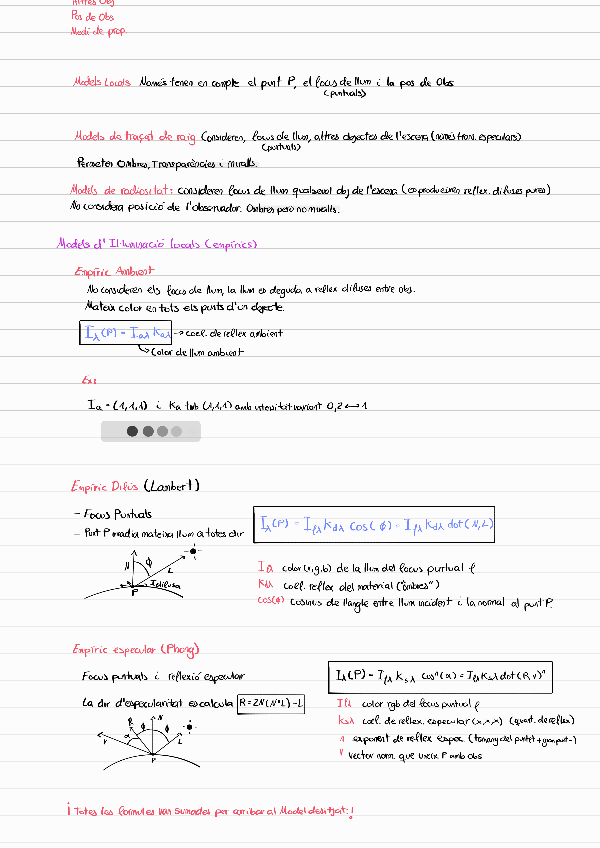 Altres Obj
Pos de Obs
Medi de prop.
Models Locals Només tenen en compte el punt P, el focus de llum i la pos de Obs
(puntuals)
Models de traçat de raig Consideren, focus de llum, altres objectes de l'escena (només tran. especulars)
(puntuals)
Permeten Ombres, Transparències i miralls.
Models de radiositat: consideren focus de llum qualsevol obj de l'escena (es produeixen reflex. difuses pures)
No considera posició de l'observador. Ombres pero no miralls.
Models d'Il·luminació Locals (empírics)
Empíric Ambient
No consideren els focus de llum, la llum es deguda a reflex difuses entre obj.
Mateix color en tots els punts d'un objecte.
Iλ(P) = Iaλ Kaλ → coef. de reflex ambient
Color de llum ambient
Ex:
Ia = (1,1,1) i Ka tmb (1,1,1) amb intensitat variant 0,2 ↔ 1
Empíric Difús (Lambert)
- Focus Puntuals
- Punt P irradia mateixa llum a totes dir
Iλ(P) = Ifλ Kdλ Cos(ϕ) = Ifλ Kdλ dot(N,L)
N ϕ L I difusa P
Ifλ color (r,g,b) de la llum del focus puntual f
Kdλ coef. reflex del material ("ombres")
cos(ϕ) cosinus de l'angle entre llum incident i la normal al punt P.
Empíric especular (Phong)
Focus puntuals i reflexió especular
La dir d'especularitat es calcula R = 2N(N*L) - L
Iλ(P) = Ifλ Ksλ cosⁿ(α) = Ifλ Ksλ dot(R,v)ⁿ
v R α ϕ N ϕ L P
Ifλ color rgb del focus puntual f
Ksλ coef. de reflex. especular (x,x,x) (quant. de reflex)
n exponent de reflex espec. (tamany del puntet + gran punt -)
V vector norm. que uneix P amb obs
¡ Totes les formules van sumades per arribar al Model desitjat !